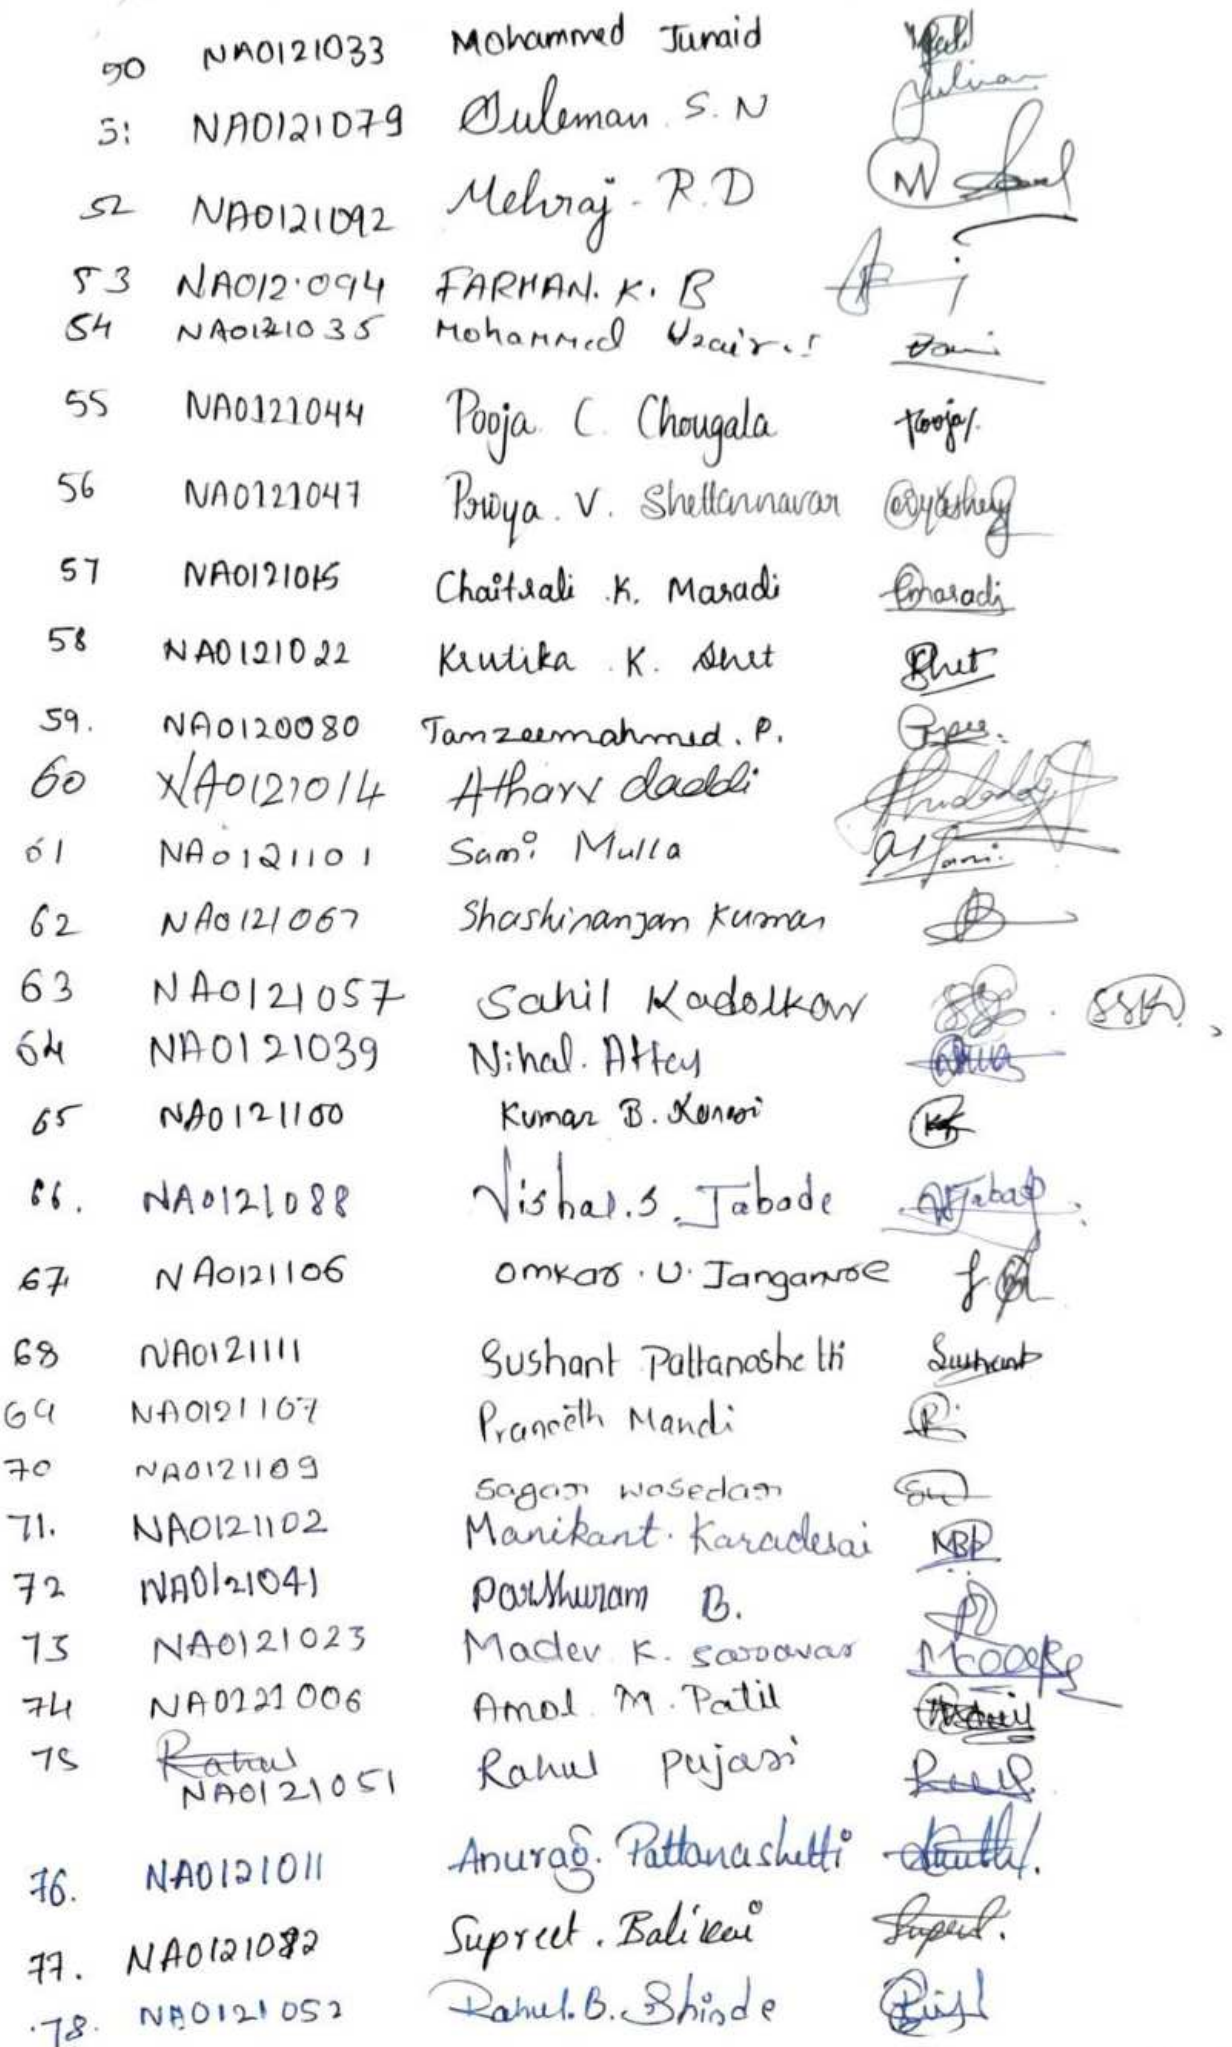 50 NA0121033 Mohammed Junaid
51 NA0121079 Suleman. S. N
52 NA0121092 Mehraj. R. D
53 NA012·094 FARHAN. K. B
54 NA0121035 Mohammed Uzair.
55 NA0121044 Pooja C. Chougala Pooja
56 NA0121047 Priya. V. Shettannavar
57 NA0121015 Chaitrali .K. Maradi Cmaradi
58 NA0121022 Krutika .K. Shet Shet
59. NA0120080 Tanzeemahmed. P.
60 NA0121014 Atharv daddi
61 NA0121101 Sami Mulla
62 NA0121067 Shashiranjan Kumar
63 NA0121057 Sahil Kadolkar SSK
64 NA0121039 Nihal.
65 NA0121100 Kumar B.
66. NA0121088 Vishal.S. Jabade
67 NA0121106 Omkar . U.
68 NA0121111 Sushant Pattanashetti Sushant
69 NA0121107 Praneeth Mandi
70 NA0121109 Sagar wasedar
71. NA0121102 Manikant. Karadesai
72 NA0121041 Parshuram B.
73 NA0121023 Madev K. saravar
74 NA0121006 Amol. M. Patil
75 Rahul Rahul Pujari
NA0121051
76. NA0121011 Anurag. Pattanashetti
77. NA0121082 Supreet . Balikai
78. NA0121052 Rahul.B. Shinde